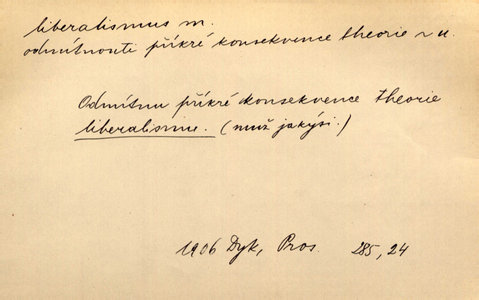 liberalismus m.
odmítnouti příkré konsekvence theorie ~u.
Odmítnu příkré konsekvence theorie
liberalismu. (muž jakýsi.)
1906 Dyk, Pros. 285, 24